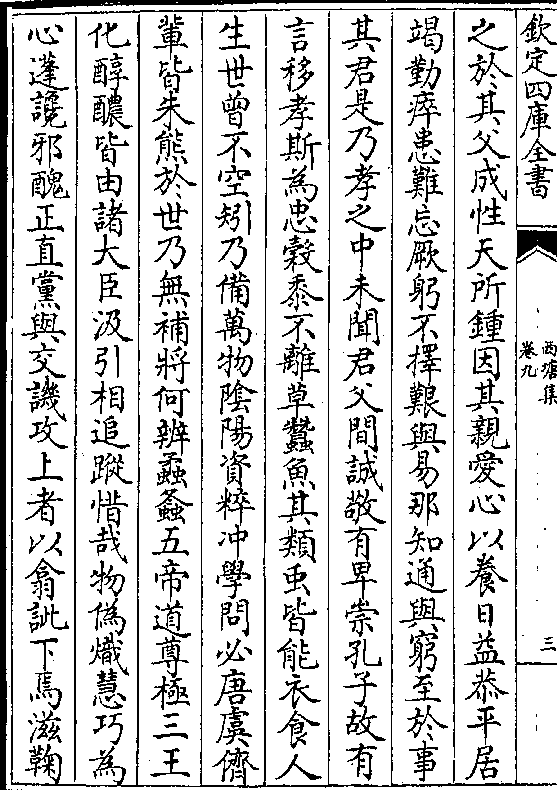 欽定四庫全書
西塘集
卷九
三
之於其父成性天所鍾因其親愛心以養日益恭平居
竭勤瘁患難忘厥躬不擇艱與易那知通與窮至於事
其君是乃孝之中未聞君父間誠敬有卑崇孔子故有
言移孝斯為忠穀黍不離草蠶魚其類虫皆能衣食人
生世曾不空矧乃備萬物陰陽資粹冲學問必唐虞儕
輩皆朱熊於世乃無補將何辨蟊螽五帝道尊極三王
化醇醲皆由諸大臣汲引相追蹤惜哉物偽熾慧巧為
心蓬讒邪醜正直黨與交譏攻上者以翕訿下焉滋鞠